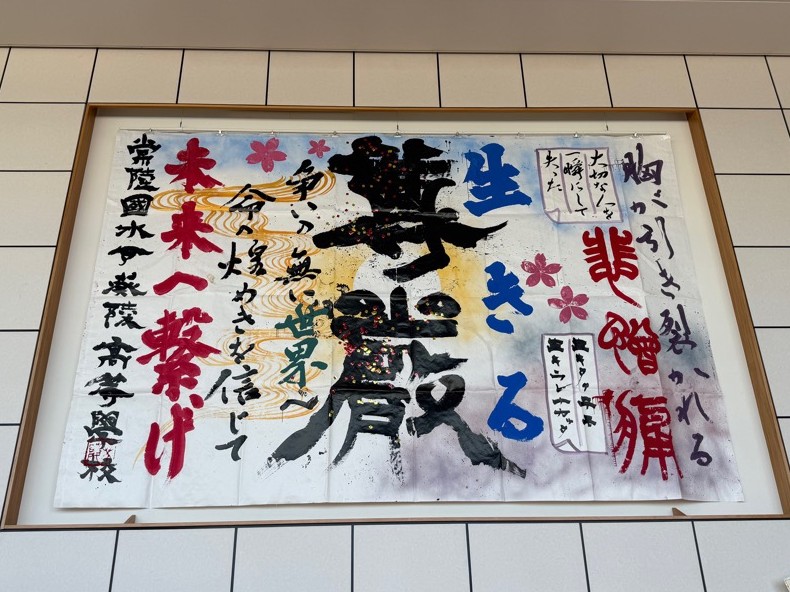 胸が引き裂かれる
悲憎痛
大切な人を
一瞬にして
失った
生キタクテモ
生きる
尊厳
争いの無い世界へ
命の煌めきを信じて
未来へ繋げ
常陸國水戸葵陵高等學校